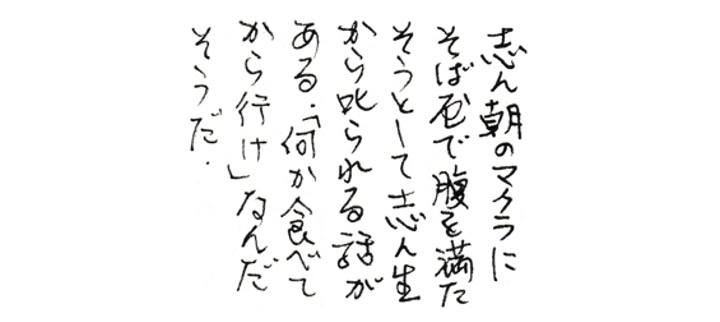 志ん朝のマクラに
そば屋で腹を満た
そうとして志ん生
から叱られる話が
ある.「何か食べて
から行け」なんだ
そうだ.